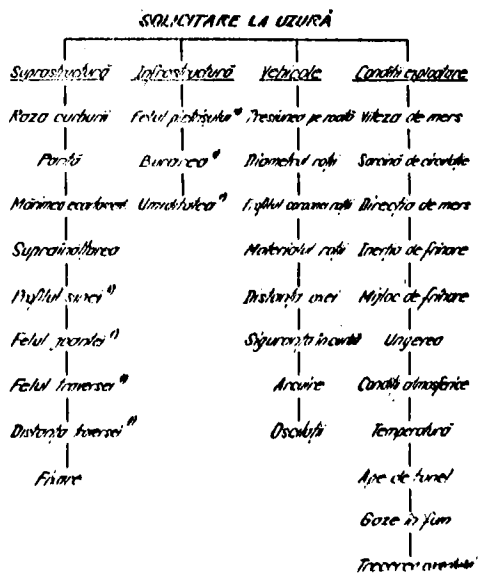 SOLICITARE LA UZURĂ
Suprastructură
Raza curburii
Pantă
Mărimea ecartament
Supraînălțarea
Profilul șinei *)
Felul joantei *)
Felul traversei *)
Distanța traversei *)
Fixare
Infrastructură
Felul pietrișului *)
Burarea *)
Umiditatea *)
Vehicole
Presiunea pe roată
Diametrul roții
Profilul coroanei roții
Materialul roții
Distanța axei
Siguranța în curbă
Arcuire
Oscilații
Condiții exploatare
Viteza de mers
Sarcină de circulație
Direcția de mers
Inerția de frînare
Mijloc de frînare
Ungerea
Condiții atmosferice
Temperatură
Ape de tunel
Gaze în fum
Trecerea curentului